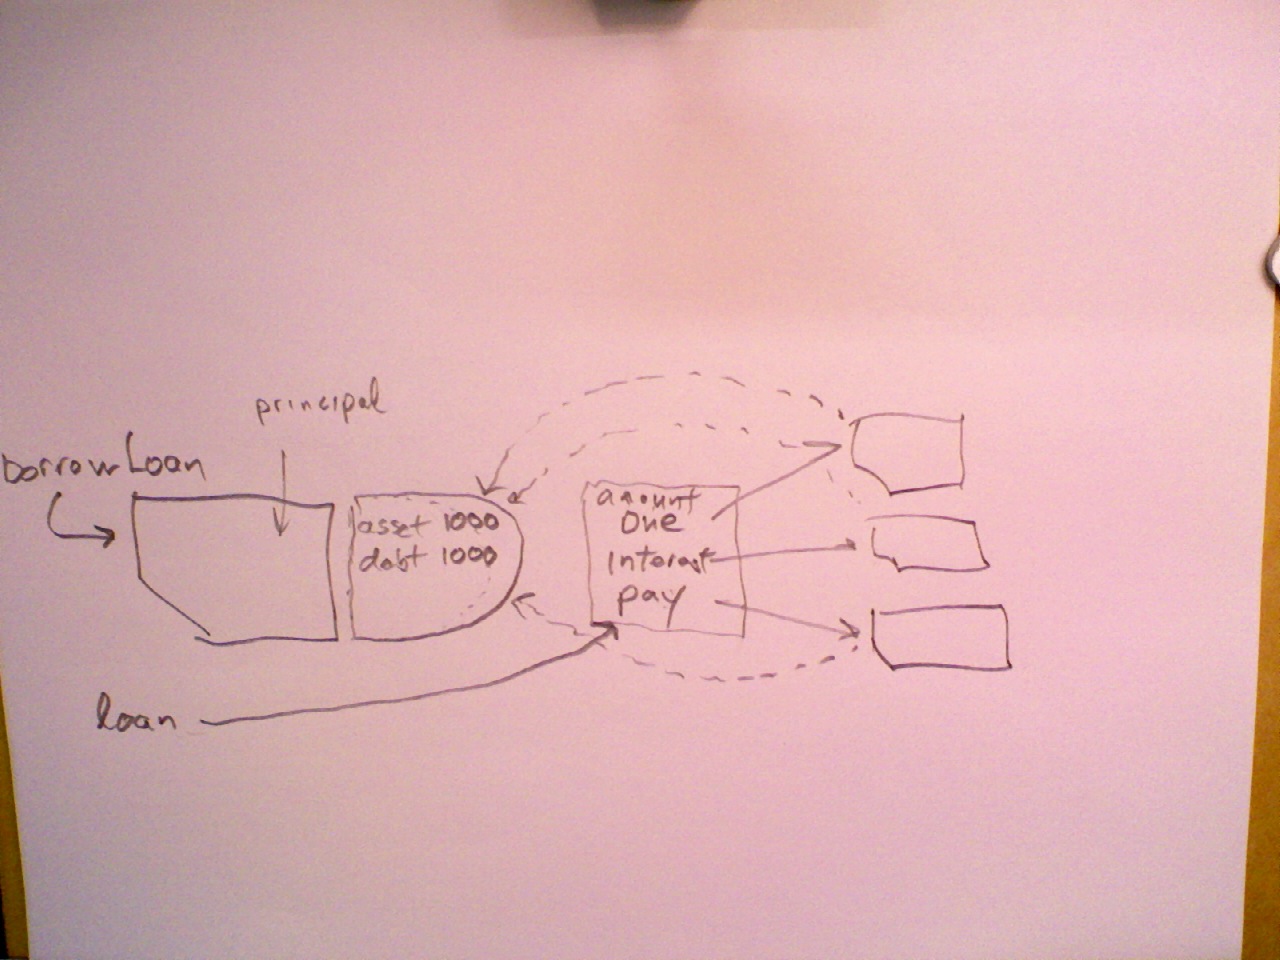 principal
borrowLoan
asset 1000
debt 1000
amount
One
Interest
pay
loan